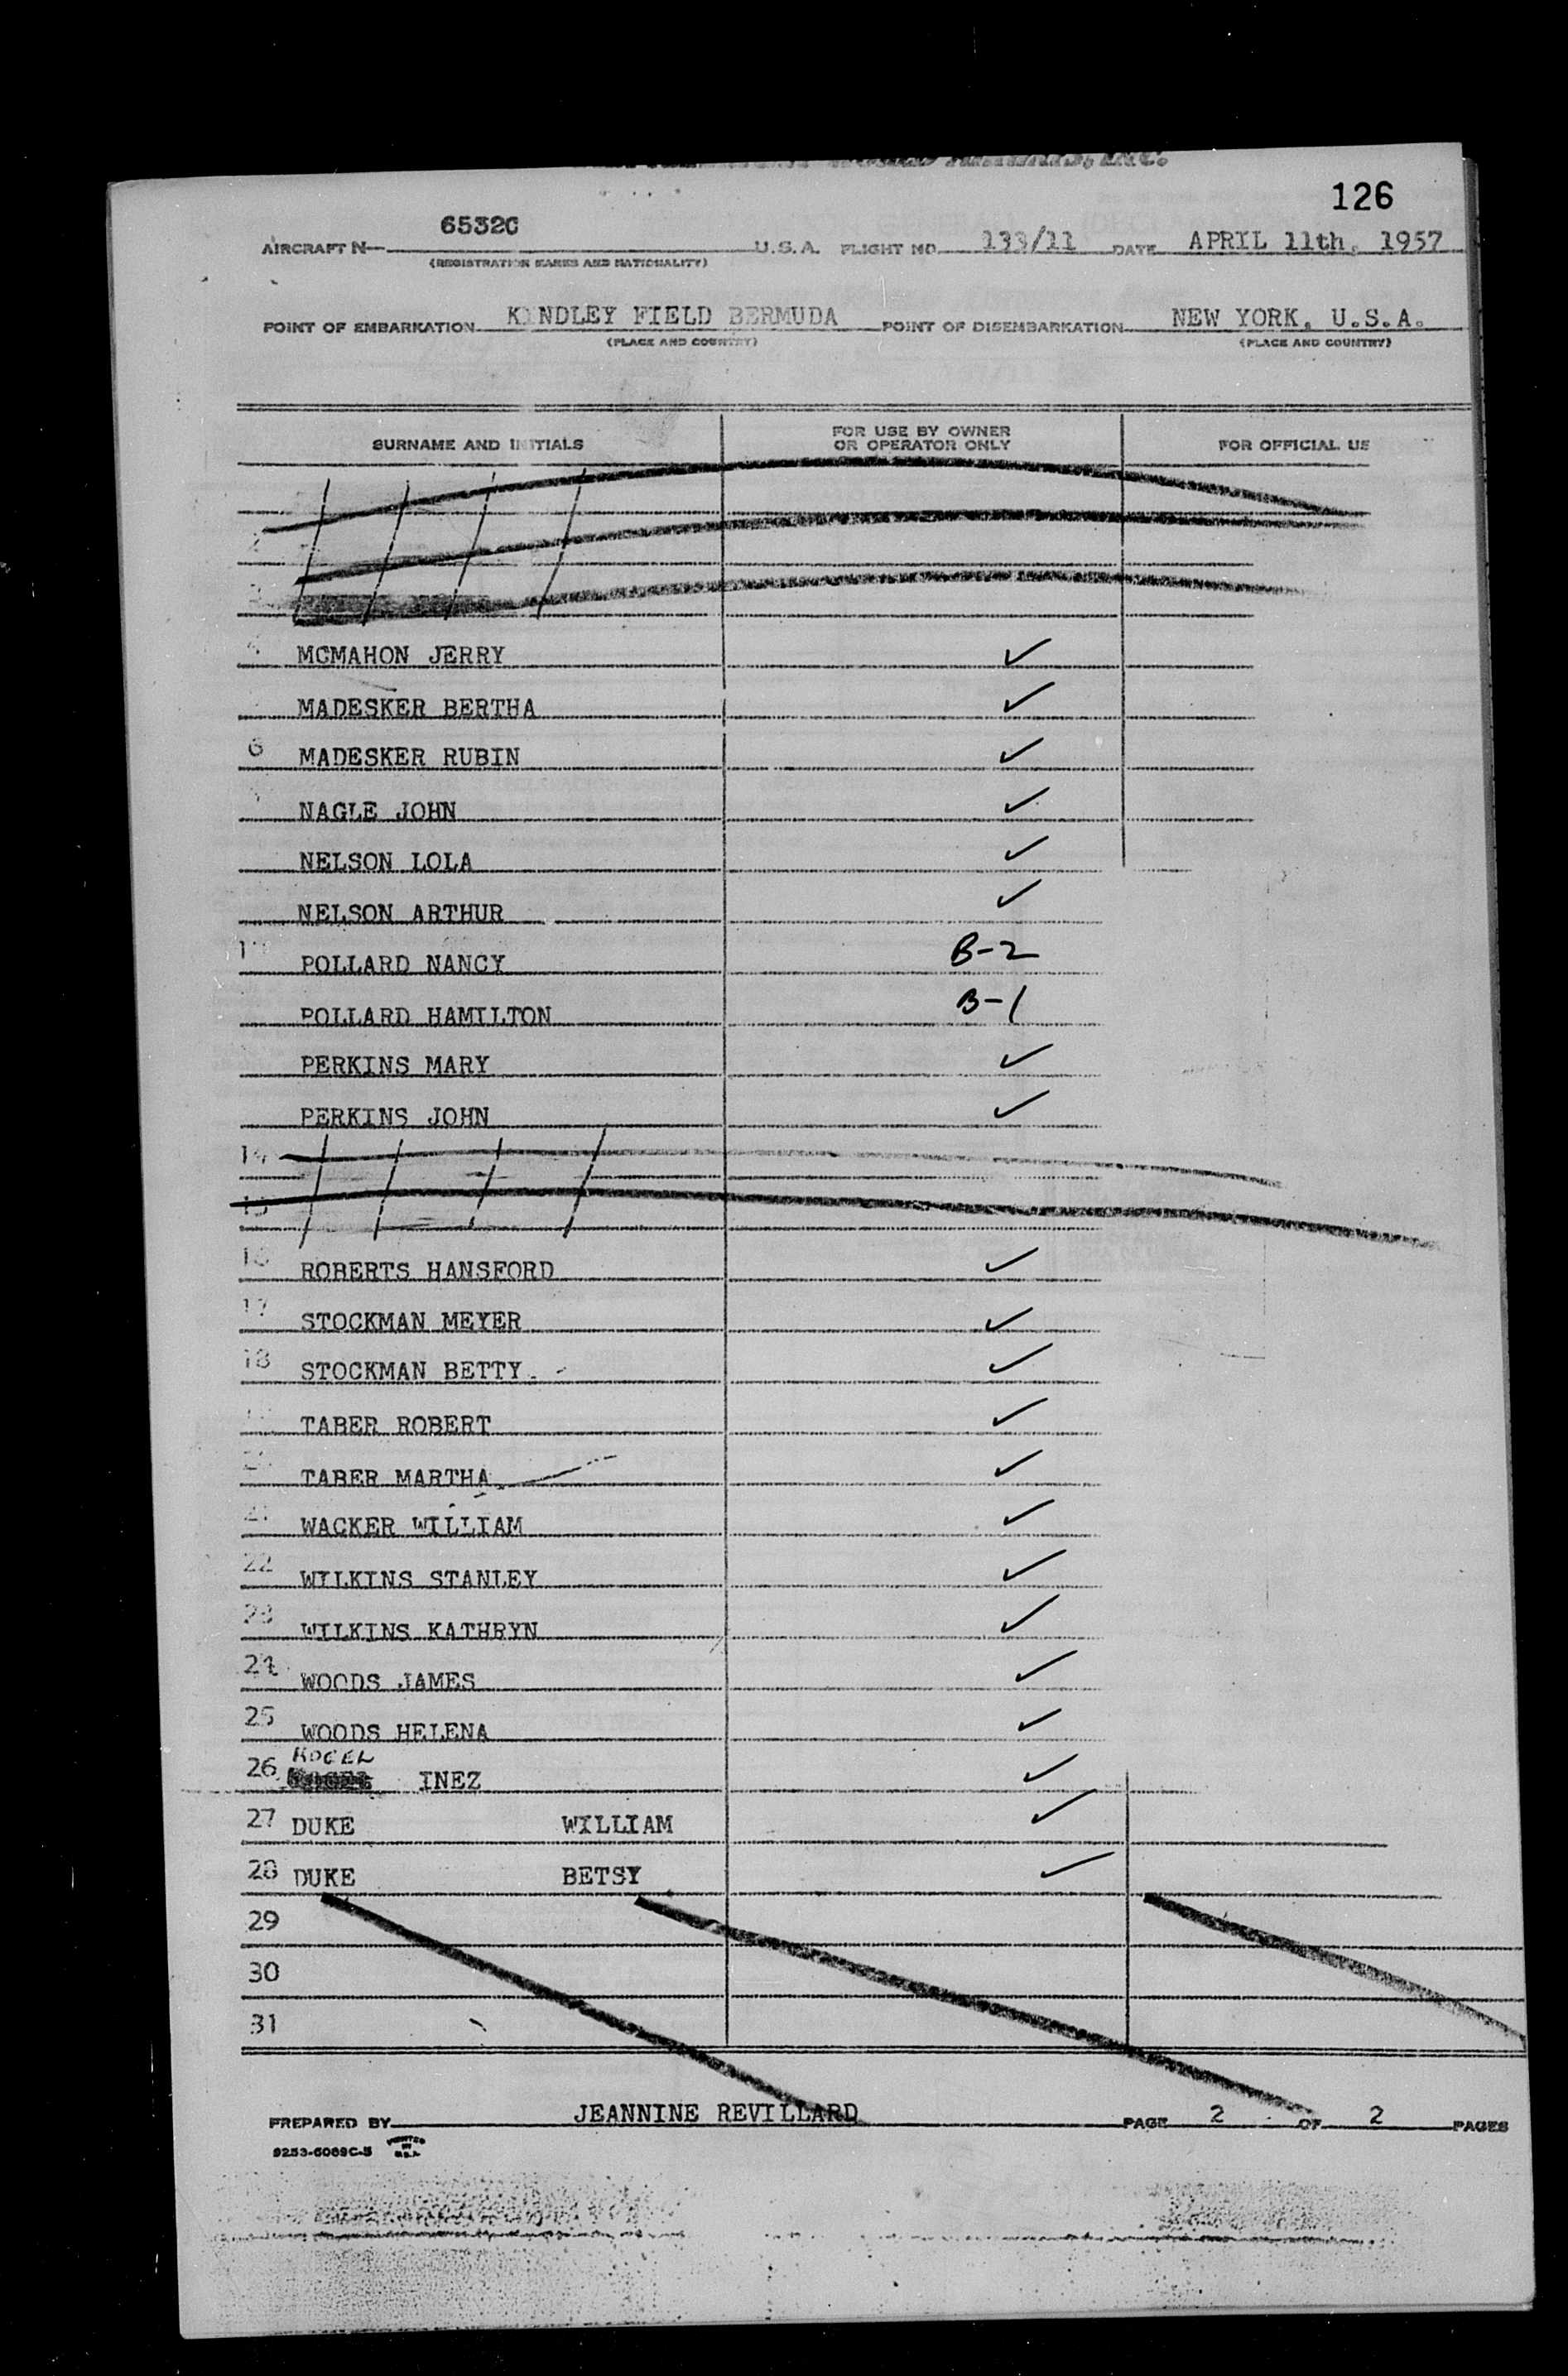 126
6532C
AIRCRAFT N U.S.A. FLIGHT NO 133/11 DATE APRIL 11th, 1957
(REGISTRATION MARKS AND NATIONALITY)
POINT OF EMBARKATION KINDLEY FIELD BERMUDA POINT OF DISEMBARKATION NEW YORK, U.S.A.
(PLACE AND COUNTRY) (PLACE AND COUNTRY)
SURNAME AND INITIALS FOR USE BY OWNER OR OPERATOR ONLY FOR OFFICIAL US
MCMAHON JERRY ✓
MADESKER BERTHA ✓
6 MADESKER RUBIN ✓
NAGLE JOHN ✓
NELSON LOLA ✓
NELSON ARTHUR ✓
POLLARD NANCY B-2
POLLARD HAMILTON B-1
PERKINS MARY ✓
PERKINS JOHN ✓
14
15
16 ROBERTS HANSFORD ✓
17 STOCKMAN MEYER ✓
18 STOCKMAN BETTY ✓
TABER ROBERT ✓
TABER MARTHA ✓
WACKER WILLIAM ✓
22 WILKINS STANLEY ✓
23 WILKINS KATHRYN ✓
24 WOODS JAMES ✓
25 WOODS HELENA ✓
26 INEZ ✓
27 DUKE WILLIAM ✓
28 DUKE BETSY ✓
29
30
31
PREPARED BY JEANNINE REVILLARD PAGE 2 OF 2 PAGES
9253-6069C-5 PRINTED IN U.S.A.